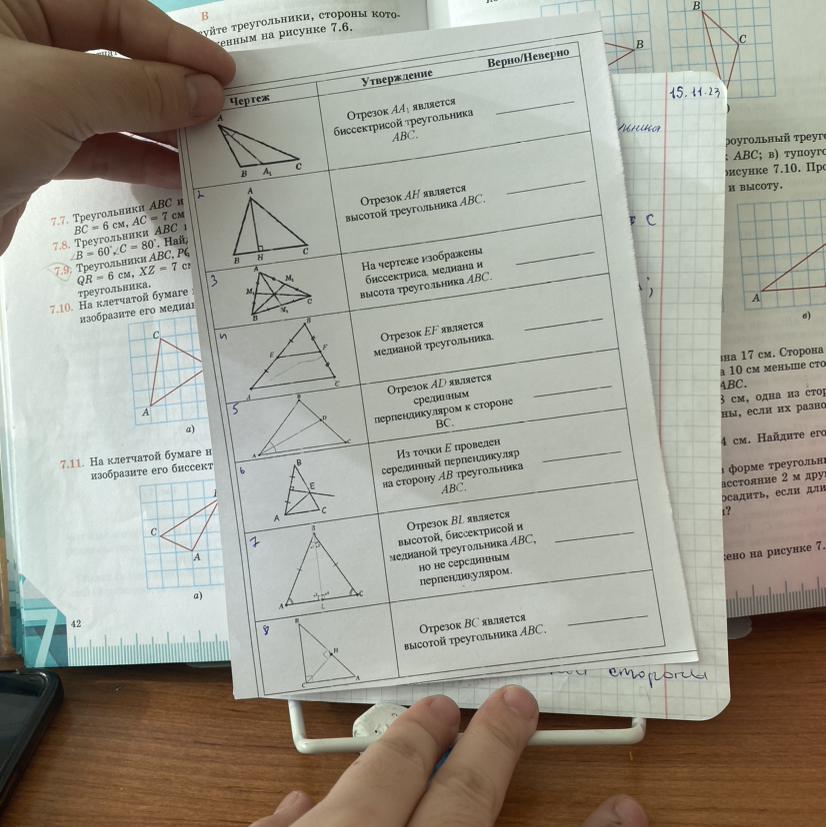 В
суйте треугольники, стороны кото-
женным на рисунке 7.6.
15.11.23
Чертеж Утверждение Верно/Неверно
Отрезок AA₁ является
биссектрисой треугольника
ABC.
A
B A₁ C
2
Отрезок AH является
высотой треугольника ABC.
A
B H C
3
На чертеже изображены
биссектриса, медиана и
высота треугольника ABC.
A M₁ C B
4
Отрезок EF является
медианой треугольника.
B E F A C
5
Отрезок AD является
срединным
перпендикуляром к стороне
BC.
B D A C
6
Из точки E проведен
серединный перпендикуляр
на сторону AB треугольника
ABC.
B E A C
7
Отрезок BL является
высотой, биссектрисой и
медианой треугольника ABC,
но не серединным
перпендикуляром.
B A L C
8
Отрезок BC является
высотой треугольника ABC.
B H C A
7.7. Треугольники ABC и
BC = 6 см, AC = 7 см
7.8. Треугольники ABC
∠B = 60°, ∠C = 80°. Най
7.9. Треугольники ABC, PQ
QR = 6 см, XZ = 7 с
треугольника.
7.10. На клетчатой бумаге
изобразите его медиа
C
A
а)
7.11. На клетчатой бумаге и
изобразите его биссект
C
A
а)
42
7
B
B
C
роугольный треуг
ABC; в) тупоуго
рисунке 7.10. Про
и высоту.
A
в)
вна 17 см. Сторона
а 10 см меньше сто
ABC.
см, одна из стор
ны, если их разно
4 см. Найдите его
форме треугольн
асстояние 2 м дру
осадить, если дли
?
ено на рисунке 7.
стороны